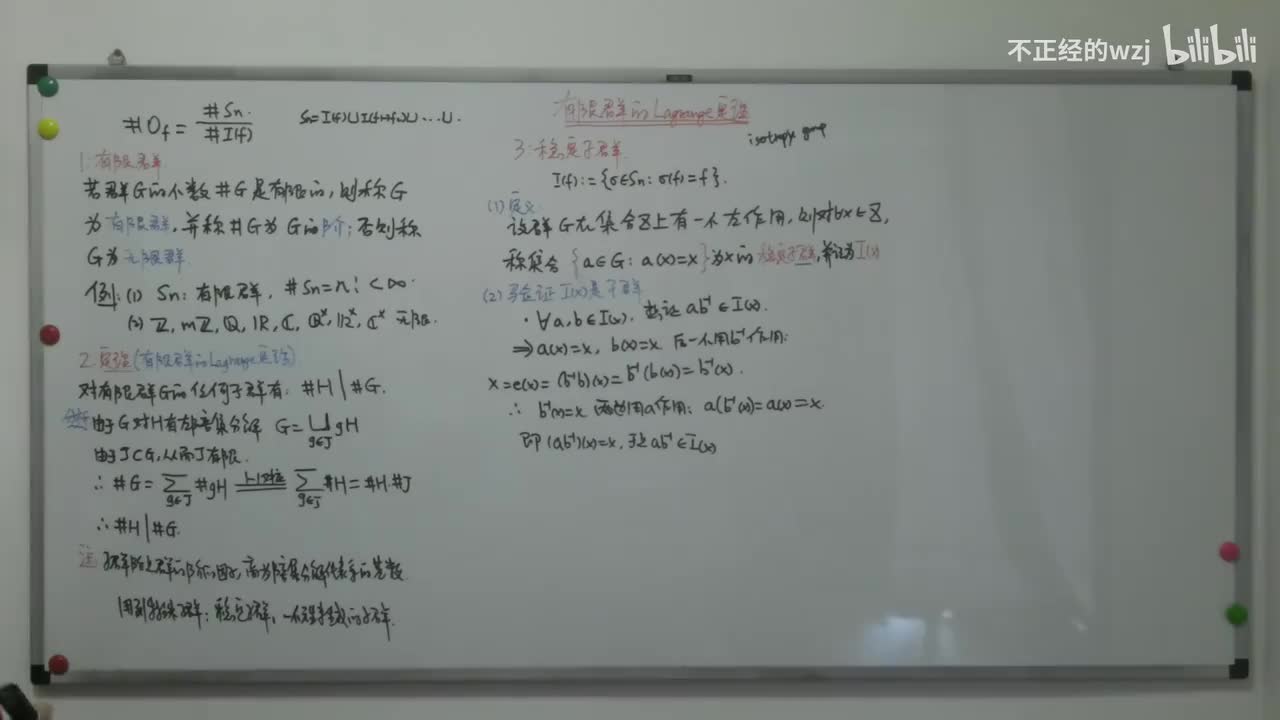 不正经的wzj bilibili
有限群的Lagrange定理
#O_f = #Sn / #I(f)
Sn=I(f)∪I(f→f₁)∪...∪.
1. 有限群
若群G的个数#G是有限的,则称G
为有限群,并称#G为G的阶;否则称
G为无限群.
例:(1) Sn:有限群,#Sn=n!<∞.
(2) ℤ, mℤ, ℚ, ℝ, ℂ, ℚ^×, ℝ^×, ℂ^× 无限.
2. 定理(有限群的Lagrange定理)
对有限群G的任何子群有:#H | #G.
由于G对H有左陪集分解 G=⊔_{g∈J} gH
由于J⊂G,从而J有限.
∴ #G = ∑_{g∈J} #gH = ∑_{g∈J} #H = #H·#J
∴ #H | #G.
注 子群阶是群的阶的因子,商为陪集分解代表系的
用到特殊子群:稳定子群,一个元素生成的子群.
3. 稳定子群
isotropy group
I(f):={σ∈Sn: σ(f)=f}.
(1) 定义
设群G在集合X上有一个左作用,则对∀x∈X,
称集合 {a∈G: a(x)=x}为x的稳定子群,并记为I(x)
(2) 验证I(x)是子群
· ∀a,b∈I(x), 要证ab⁻¹∈I(x).
⇒ a(x)=x, b(x)=x 后一个用b⁻¹作用:
x=e(x)=(b⁻¹b)(x)=b⁻¹(b(x))=b⁻¹(x).
∴ b⁻¹(x)=x 两边用a作用: a(b⁻¹(x))=a(x)=x.
即(ab⁻¹)(x)=x, 于是ab⁻¹∈I(x)